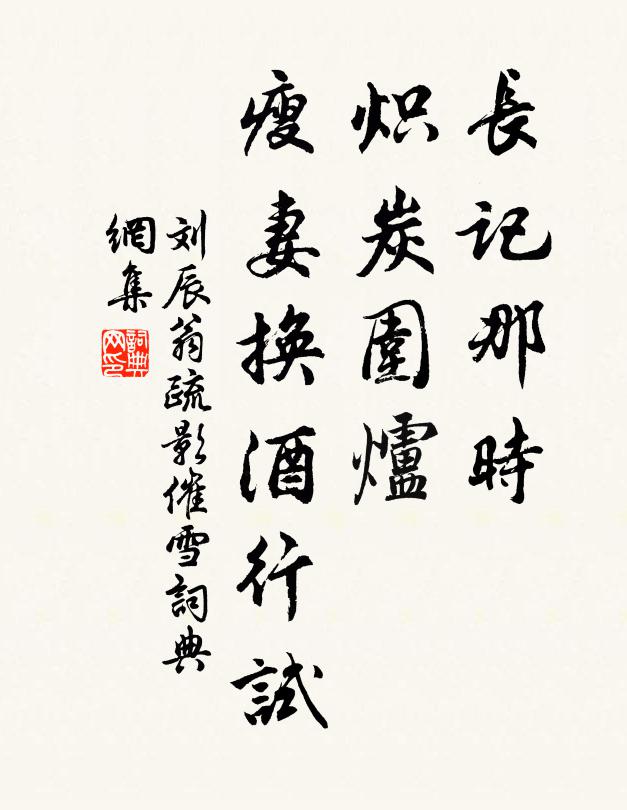 長記那時
炽炭圍爐
瘦妻換酒行試
刘辰翁疏影催雪詞典
網集
詞典
网印